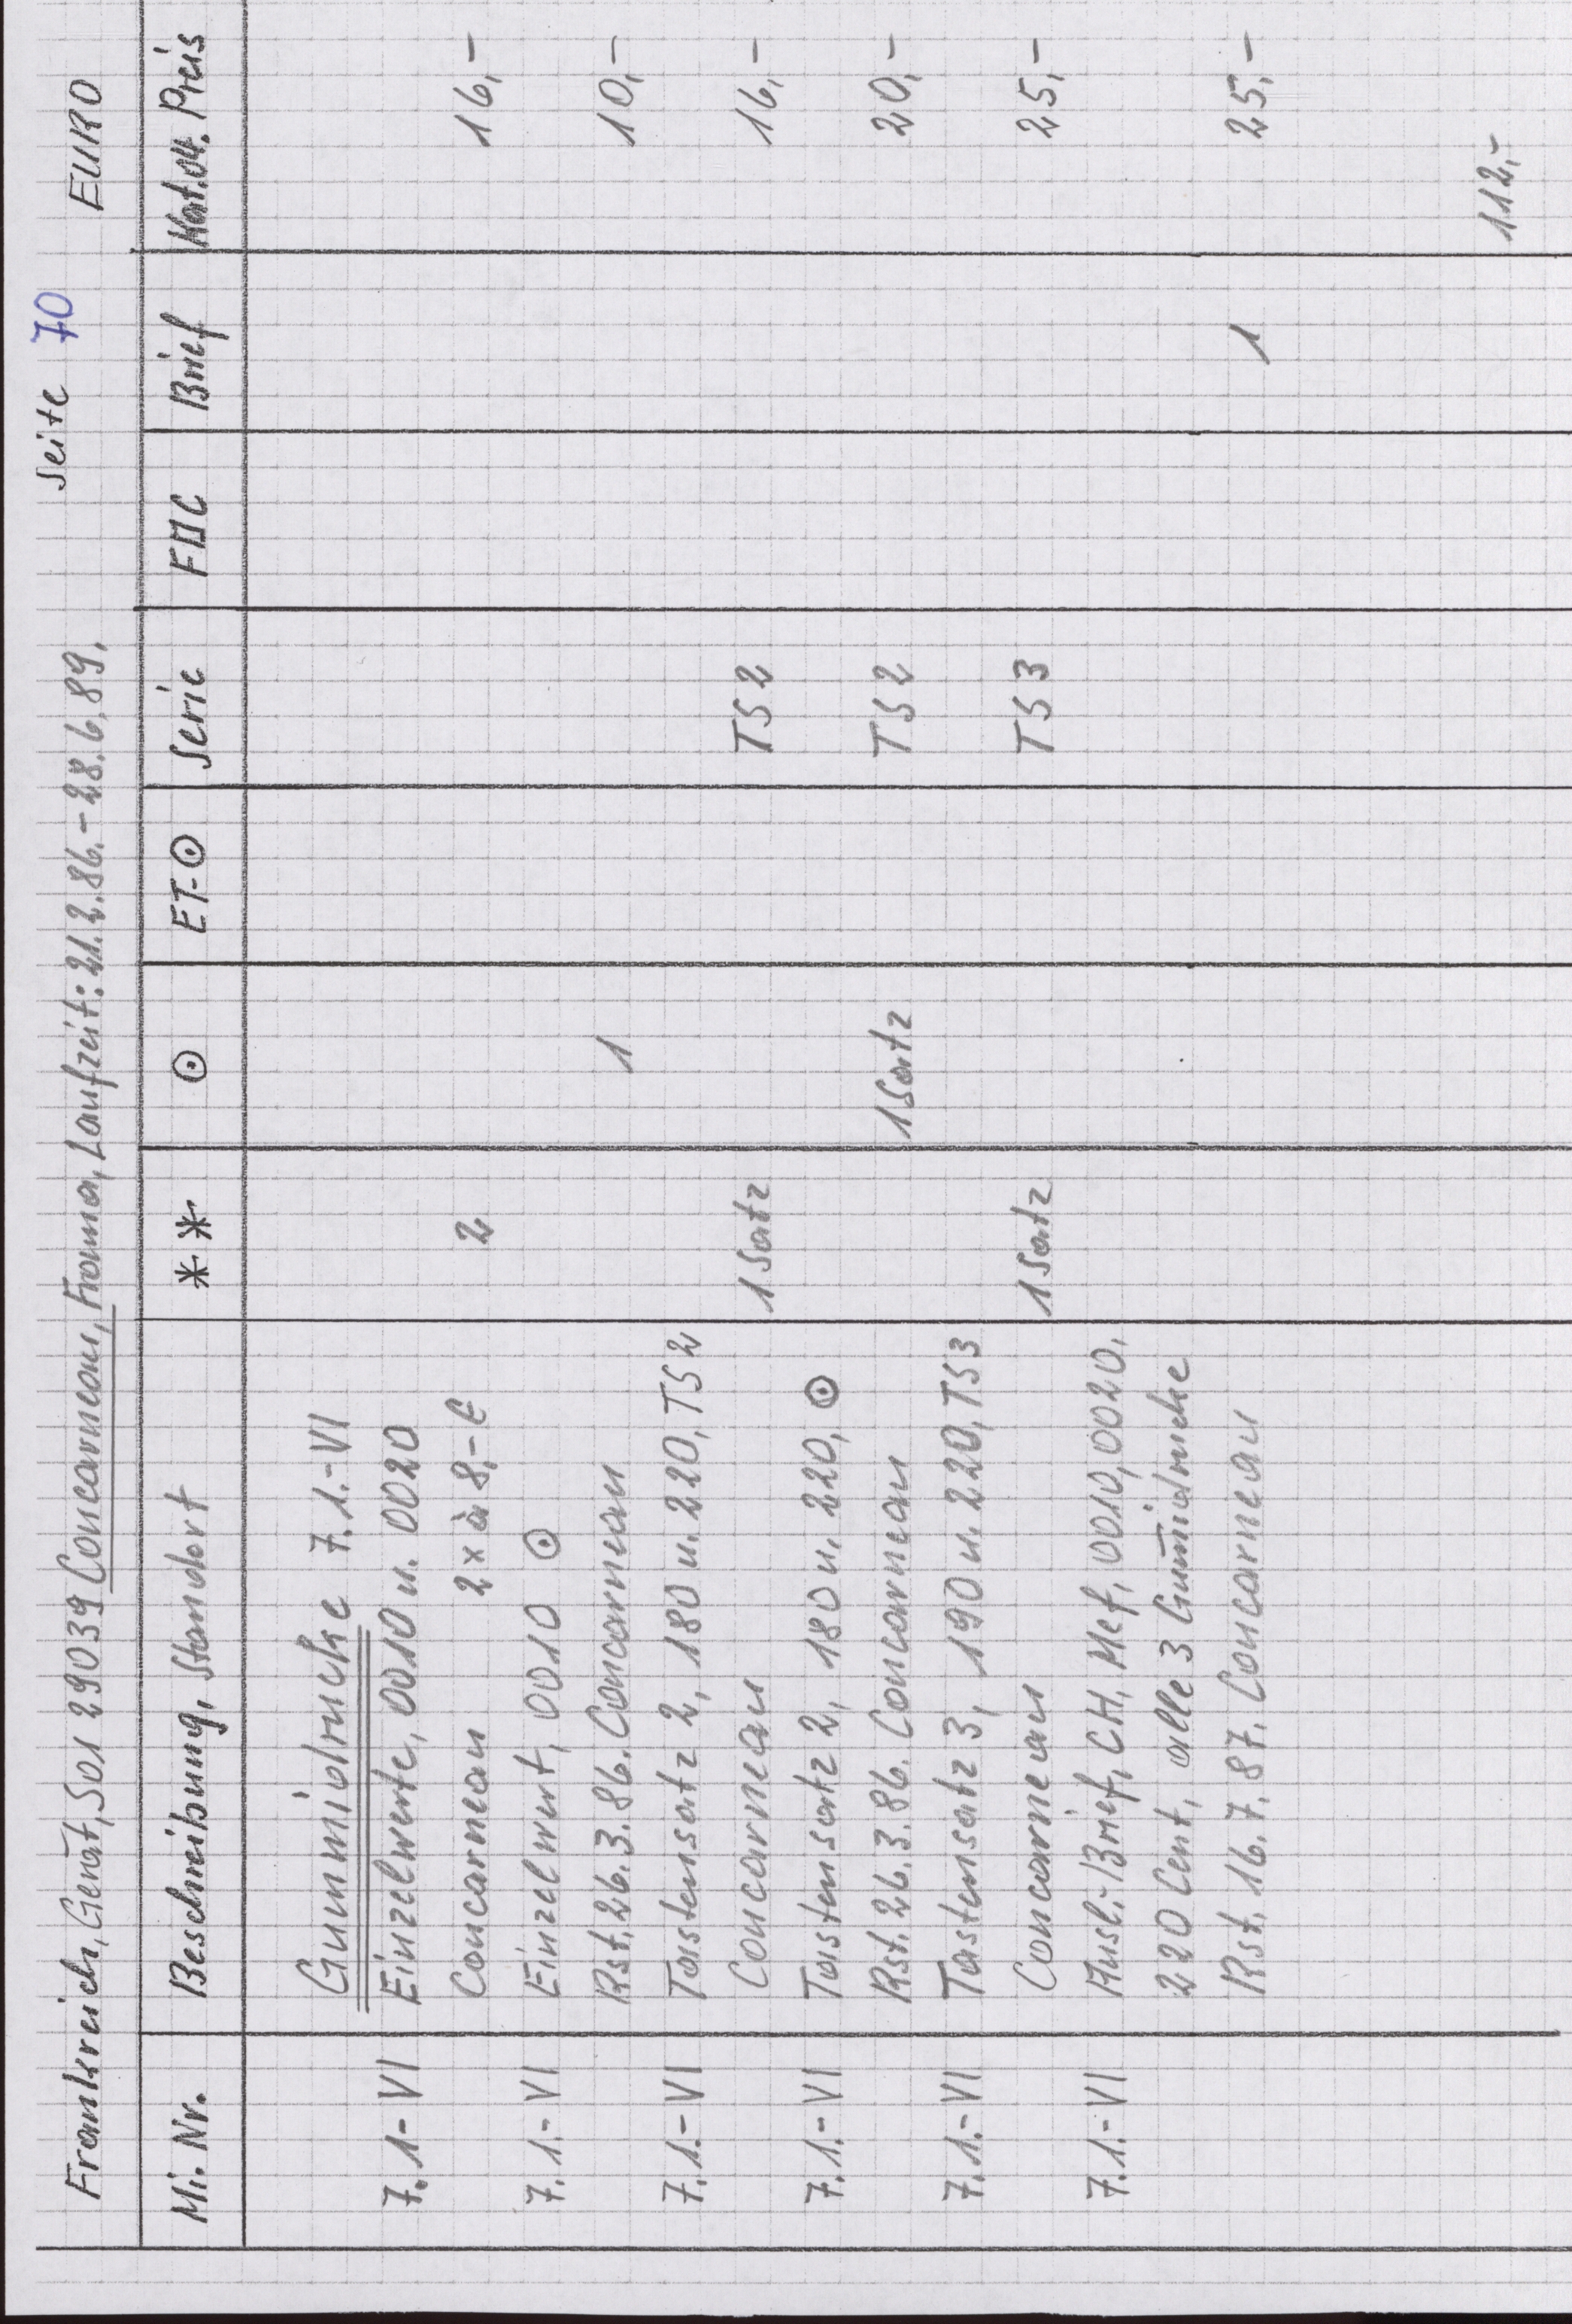 Seite 70
Frankreich, Gerät, S01 29039 Concarneau, Frama, Laufzeit: 21.2.86.-28.6.89. EURO
Mi. Nr. Beschreibung, Standort ** ⊙ ET-⊙ Serie FDC Brief Kat.04. Preis
Gummidrucke 7.1.-VI
7.1-VI Einzelwerte, 0010 u. 0020
Concarneau 2x à 8,- € 2 16,-
7.1.-VI Einzelwert, 0010 ⊙
Rst. 26.3.86. Concarneau 1 10,-
7.1.-VI Tastensatz 2, 180 u. 220, TS2
Concarneau 1 Satz TS2 16,-
7.1.-VI Tastensatz 2, 180 u. 220, ⊙
Rst. 26.3.86. Concarneau 1 Satz TS2 20,-
7.1.-VI Tastensatz 3, 190 u. 220, TS3
Concarneau 1 Satz TS3 25,-
7.1.-VI Ausl.-Brief, CH, Mef, 0010, 0020,
220 Cent, alle 3 Gum̄idrucke
Rst. 16.7.87. Concarneau 1 25,-
112,-